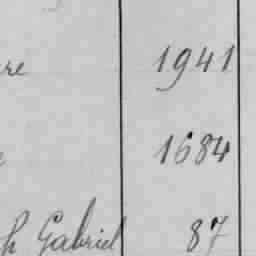 re 1941
1684
h Gabriel 87